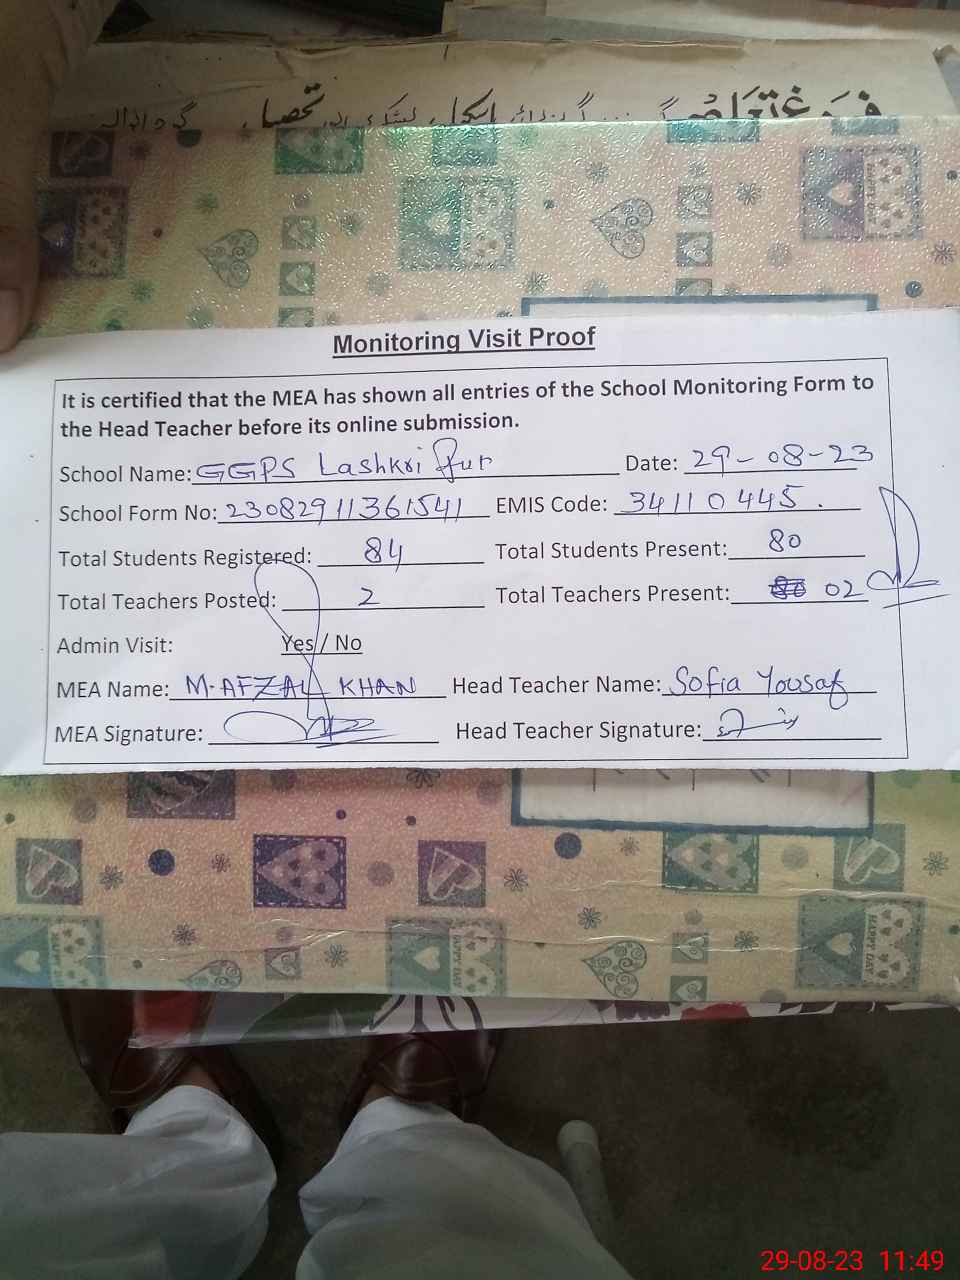 Monitoring Visit Proof
It is certified that the MEA has shown all entries of the School Monitoring Form to
the Head Teacher before its online submission.
School Name: GGPS Lashkri Pur Date: 29-08-23
School Form No: 23082911361541 EMIS Code: 34110445.
Total Students Registered: 84 Total Students Present: 80
Total Teachers Posted: 2 Total Teachers Present: 02
Admin Visit: Yes / No
MEA Name: M.AFZAL KHAN Head Teacher Name: Sofia Yousaf
MEA Signature: Head Teacher Signature:
HAPPY DAY
29-08-23 11:49